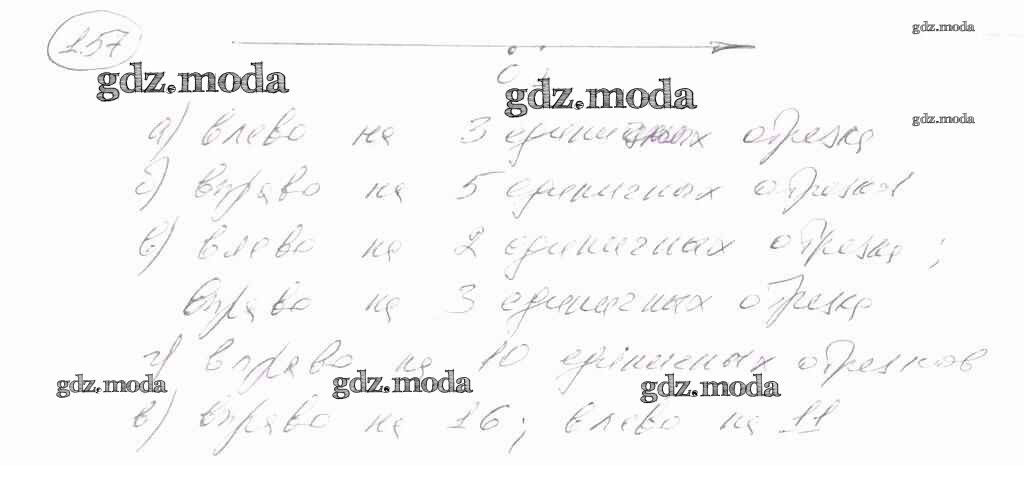 257
gdz.moda
gdz.moda
gdz.moda
0 1
а) влево на 3 единичных отрезка
gdz.moda
б) вправо на 5 единичных отрезка
в) влево на 2 единичных отрезка;
вправо на 3 единичных отрезка
г) вправо на 10 единичных отрезков
gdz.moda
gdz.moda
gdz.moda
в) вправо на 16; влево на 11